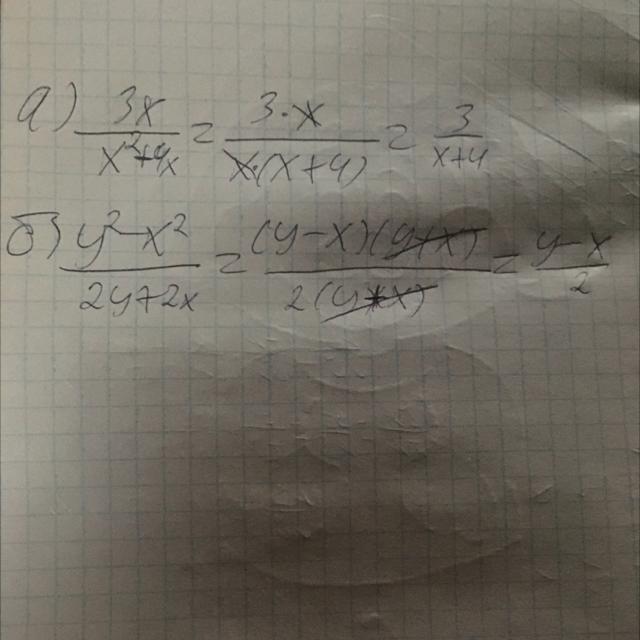 а) 3x / x²+4x = 3·x / x(x+4) = 3 / x+4
б) y²-x² / 2y+2x = (y-x)(y+x) / 2(y+x) = y-x / 2